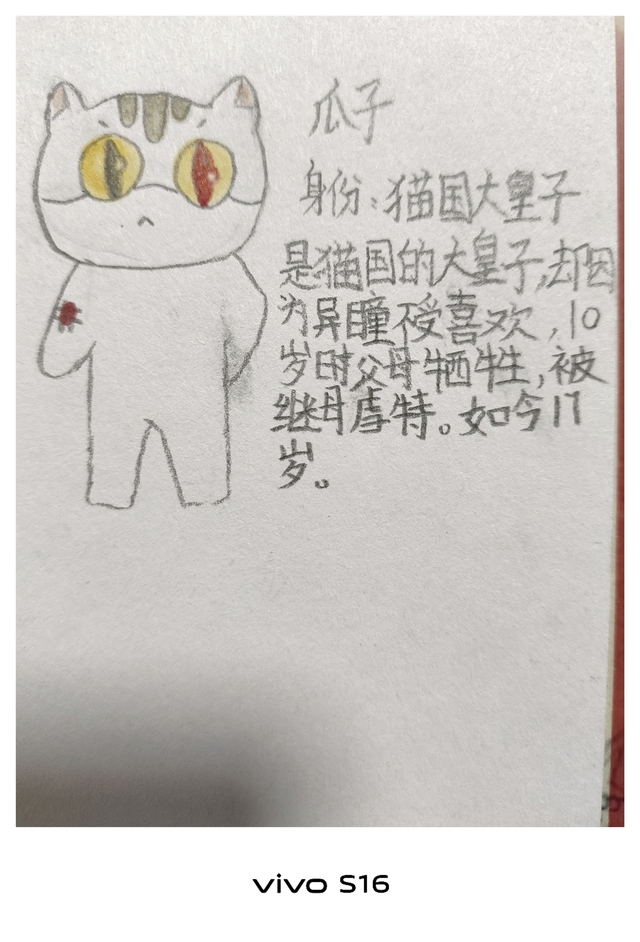 瓜子
身份：猫国大皇子
是猫国的大皇子，却因
为异瞳不受喜欢，10
岁时父母牺牲，被
继母虐特。如今17
岁。
vivo S16